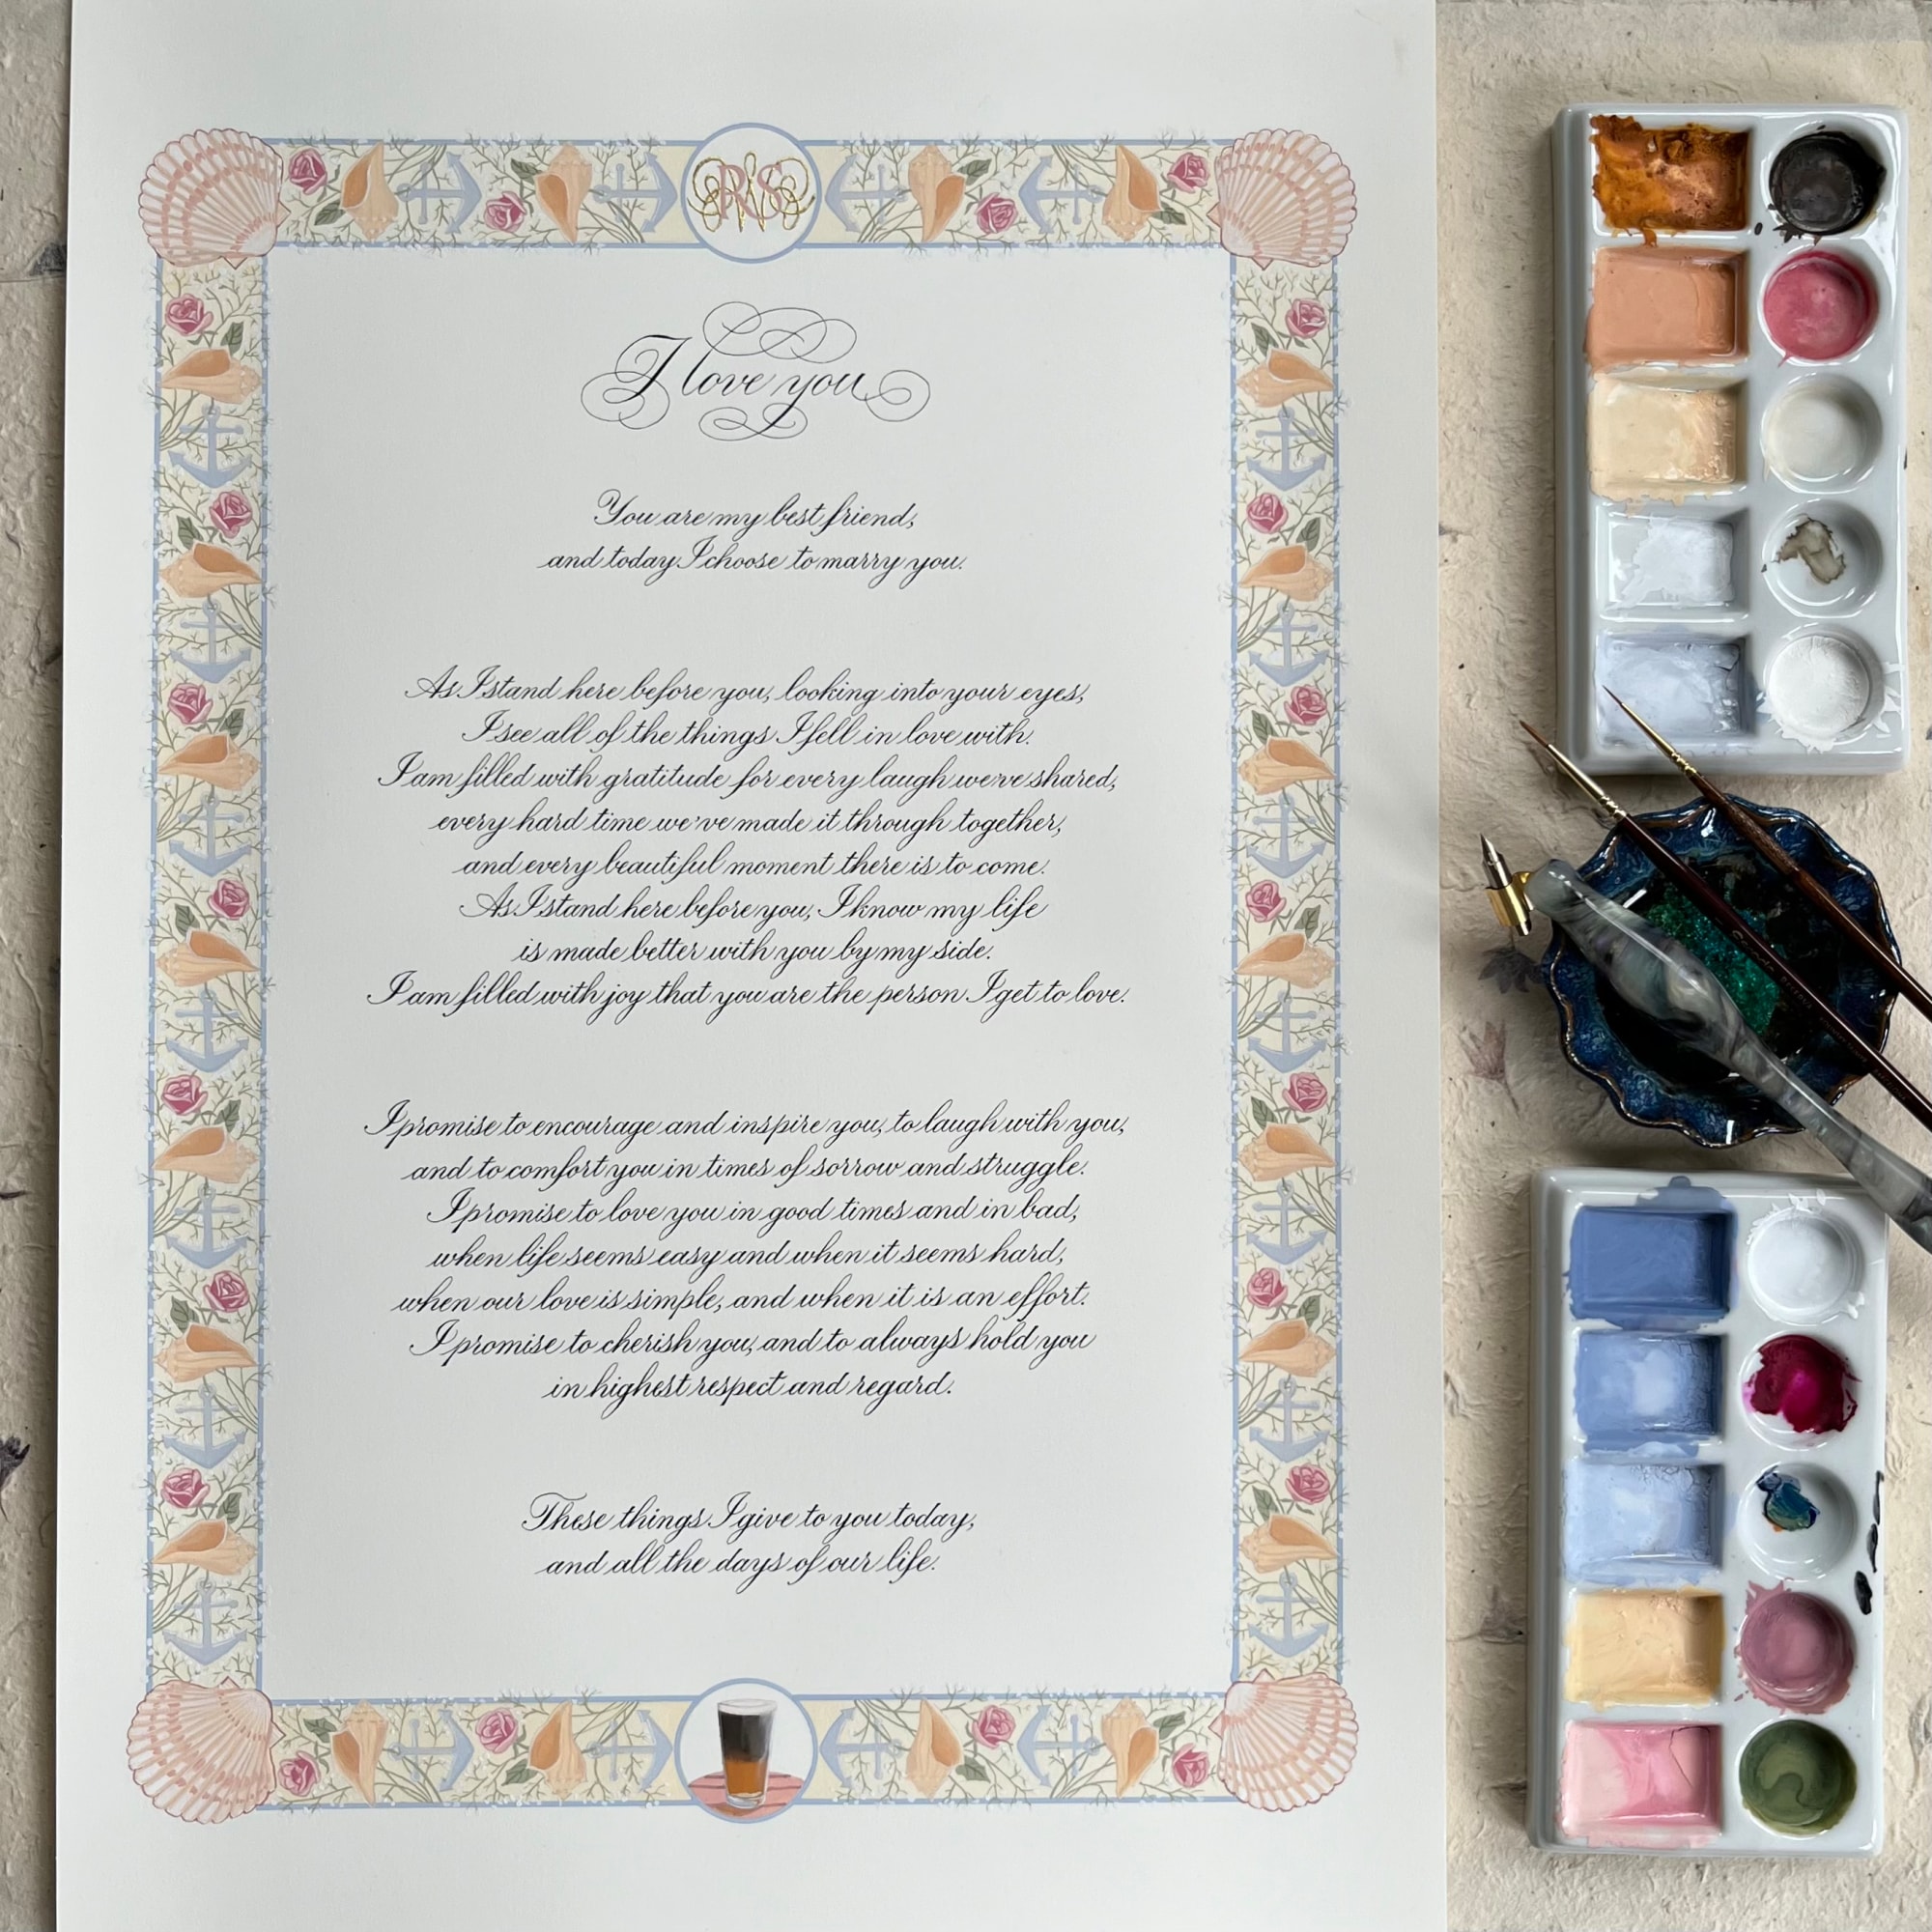 RS
I love you
You are my best friend,
and today I choose to marry you.
As I stand here before you, looking into your eyes,
I see all of the things I fell in love with.
I am filled with gratitude for every laugh we've shared,
every hard time we've made it through together,
and every beautiful moment there is to come.
As I stand here before you, I know my life
is made better with you by my side.
I am filled with joy that you are the person I get to love.
I promise to encourage and inspire you, to laugh with you,
and to comfort you in times of sorrow and struggle.
I promise to love you in good times and in bad,
when life seems easy and when it seems hard,
when our love is simple, and when it is an effort.
I promise to cherish you, and to always hold you
in highest respect and regard.
These things I give to you today,
and all the days of our life.